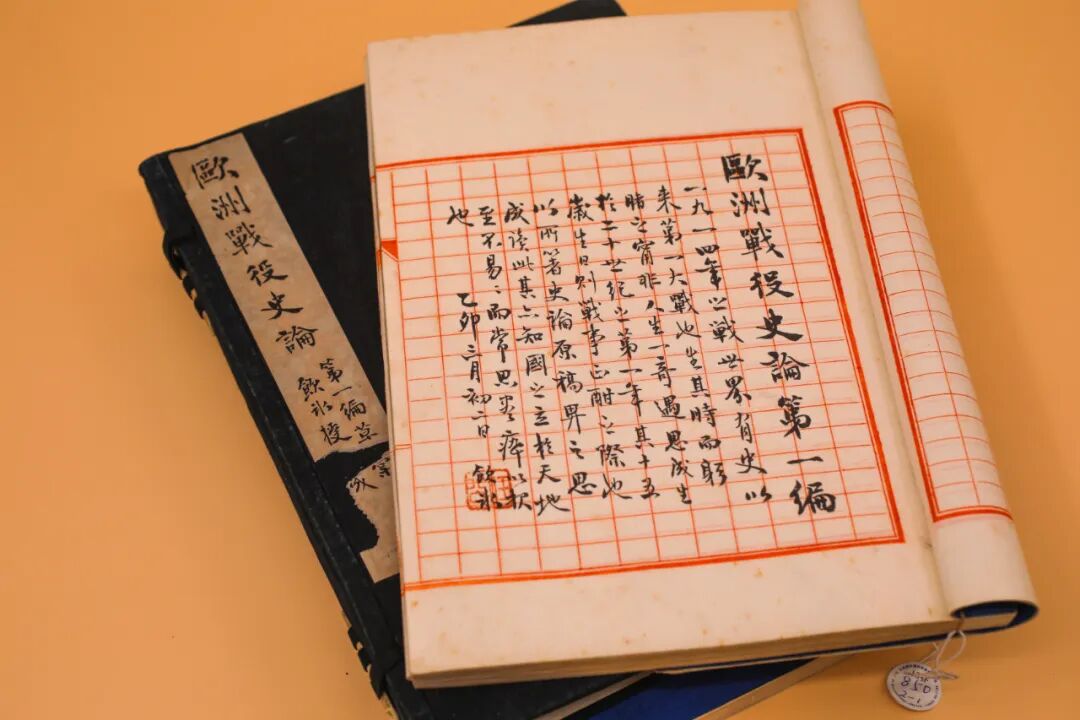 歐洲戰役史論
第一編
飲冰授
歐洲戰役史論第一編
一九一四年之戰世界有史以
来第一大戰也生其時而躬
睹之寧非人生一奇遇思成生
於二十世紀之第一年其十五
歲生日則戰事正酣之際也
以所著史論原稿畀之思
成读此其亦知國之立於天地
至不易〻而常思盡瘁以报
也 乙卯三月初二日 飲冰
850
2-1